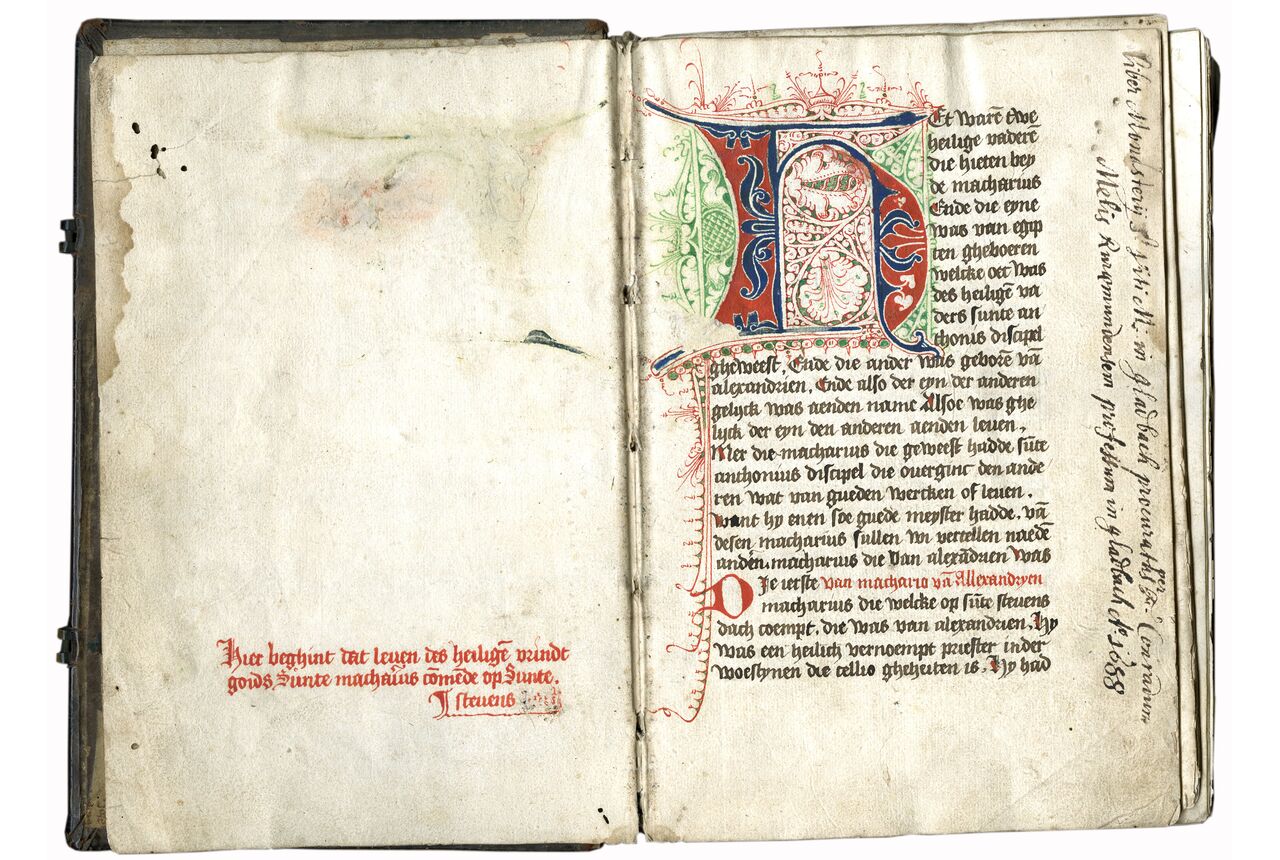 Hier beghint dat leuen des heiligē vrindt
goids. Sunte macharius comēde op Sunte.
steuens
Et warē twe
heilige vaderē
die hieten bey
de macharius
Ende die eyne
was van egip
ten gheboeren
welcke oec was
des heiligē va
ders sunte an
thonis discipel
gheweest. Ende die ander was geborē vā
alexandrien. Ende also der eyn der anderen
gelijck was aenden name Alsoe was ghe
lijck der eyn den anderen aenden leuen.
Mer die macharius die geweest hadde sūte
anthonius discipel die ouerginc den ande
ren wat van gueden wercken of leuen.
want hy enen soe guede meyster hadde. vā
desen macharius sullen wi vertellen naedē
andeň. macharius die van alexādrien was
Die ierste van machario vā Allexandryen
macharius die welcke op sūte steuens
dach coempt. die was van alexandrien. Hy
was een heilich vernoempt priester inder
woestynen die cellis gheheiten is. Hy had
Liber Monasterij S. Viti M. in gladbach procuratus per Conradum
Melis Ruremundensem professum in gladbach Aº 1688